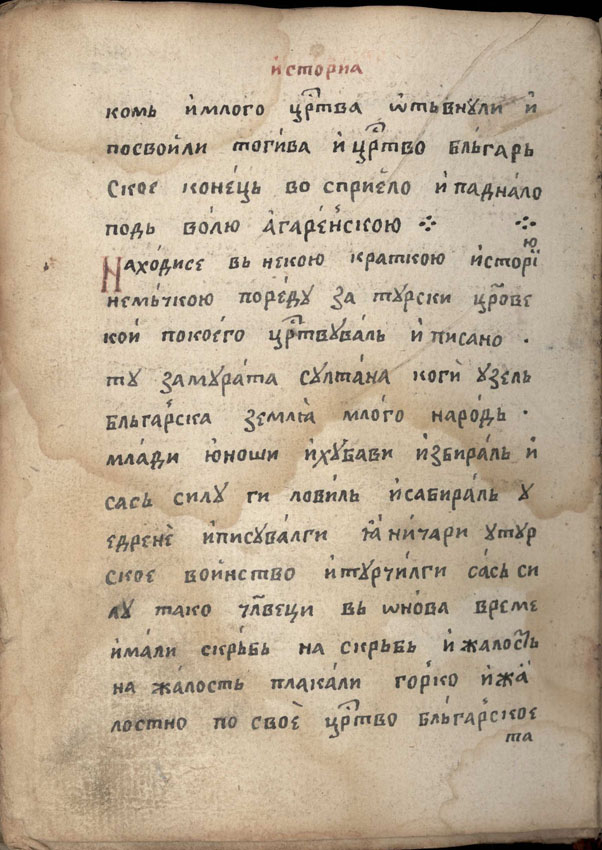 исторїа
комь и̓ млого цр҃тва ѿтьвнули и̓
посвои́ли тоги́ва и̓ цр҃тво бльгарь
ское коне́ць во сприе́ло и̓ падна́ло
подь во́лю а̓гаре́нскою ⁘ ⁘
Находисе вь некою краткою и̓сторїю
неме́чкою поре́ду за турски цр҃ове
кои́ покое́го цр҃твува́ль и̓ писано ·
ту за мура́та султа́на коги̓ узель
бльга́рска землꙗ̀ млого наро́дь ·
мла́ди ю̓ноши и̓ хубави и̓збира́ль и̓
сась силу ги ловиль и̓ сабира́ль у
едренѐ и̓ писува́лги ꙗ̓ ни́чари утур
ское вои́нство и̓ турчи́лги са́сь си
лу тако чл҃веци вь ѡно́ва време
и̓ма́ли скре́бь на скре́бь и̓ жалость
на жа́лость плака́ли го́рко и̓ жа́
лостно по своѐ цр҃тво бльга́рское
та